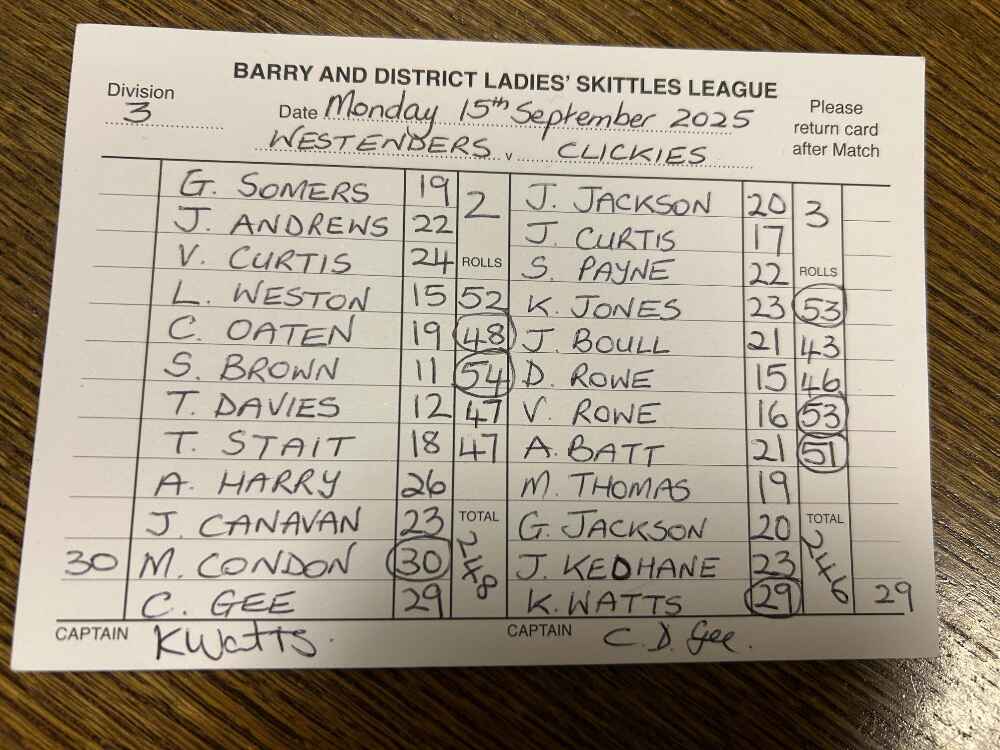 BARRY AND DISTRICT LADIES' SKITTLES LEAGUE
Division 3
Date Monday 15th September 2025
Please return card after Match
WESTENDERS v CLICKIES
G. SOMERS 19 2 J. JACKSON 20 3
J. ANDREWS 22 J. CURTIS 17
V. CURTIS 24 ROLLS S. PAYNE 22 ROLLS
L. WESTON 15 52 K. JONES 23 53
C. OATEN 19 48 J. BOULL 21 43
S. BROWN 11 54 D. ROWE 15 46
T. DAVIES 12 47 V. ROWE 16 53
T. STAIT 18 47 A. BATT 21 51
A. HARRY 26 M. THOMAS 19
J. CANAVAN 23 TOTAL G. JACKSON 20 TOTAL
30 M. CONDON 30 248 J. KEOHANE 23 246
C. GEE 29 K. WATTS 29 29
CAPTAIN KWatts. CAPTAIN C. D. Gee.